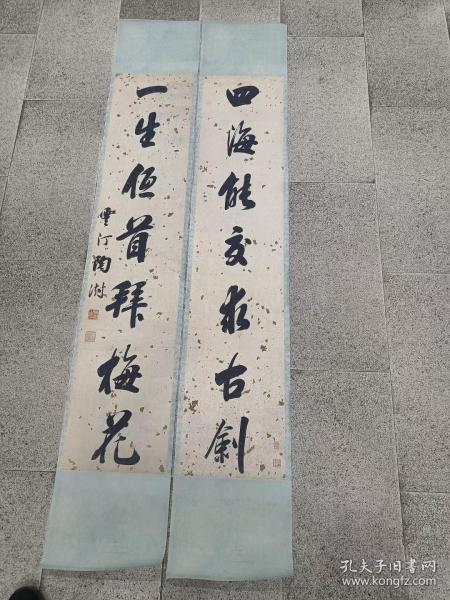 四海能交求古剑
一生低首拜梅花
云汀陶澍
孔夫子旧书网
www.kongfz.com